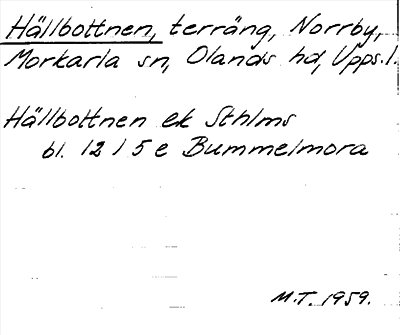 Hällbottnen, terräng, Norrby,
Morkarla sn, Olands hd, Upps. l.
Hällbottnen ek Sthlms
bl. 12 I 5 e Bummelmora
M.T. 1959.